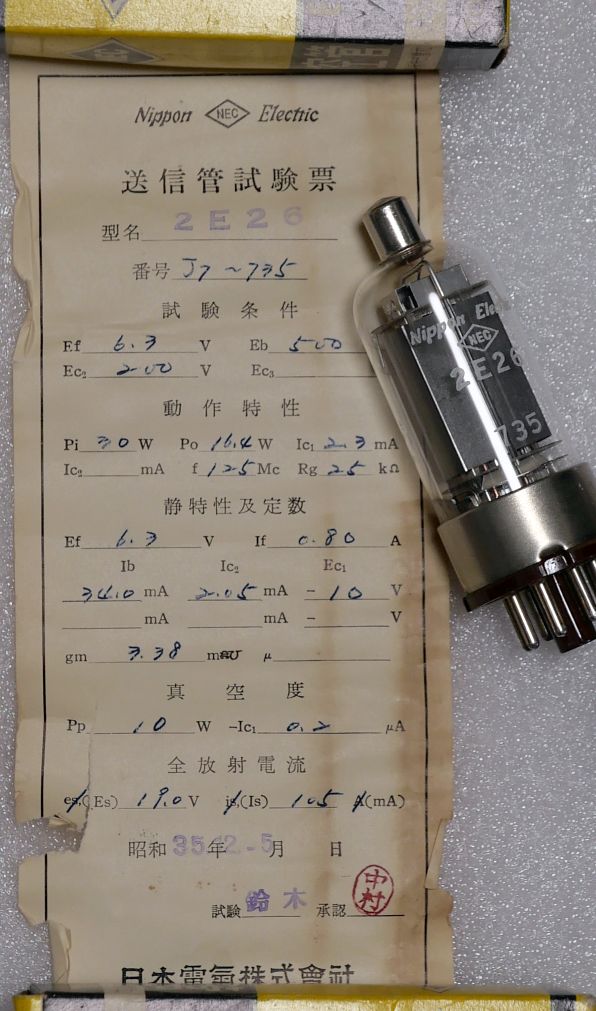 Nippon NEC Electric
送信管試験票
型名 2E26
番号 J7~735
試験条件
Ef 6.3 V Eb 500
Ec₂ 200 V Ec₃
動作特性
Pi 30 W Po 16.4 W Ic₁ 2.3 mA
Ic₂ mA f 125 Mc Rg 25 kΩ
静特性及定数
Ef 6.3 V If 0.80 A
Ib Ic₂ Ec₁
34.0 mA 2.05 mA - 10 V
mA mA - V
gm 3.38 m℧ μ
真空度
Pp 10 W -Ic₁ 0.2 μA
全放射電流
es,(Es) 19.0 V is,(Is) 105 A(mA)
昭和 35年 12-5月 日
試験 鈴木 承認 中村
日本電氣株式會社
Nippon Ele
NEC
2E26
735